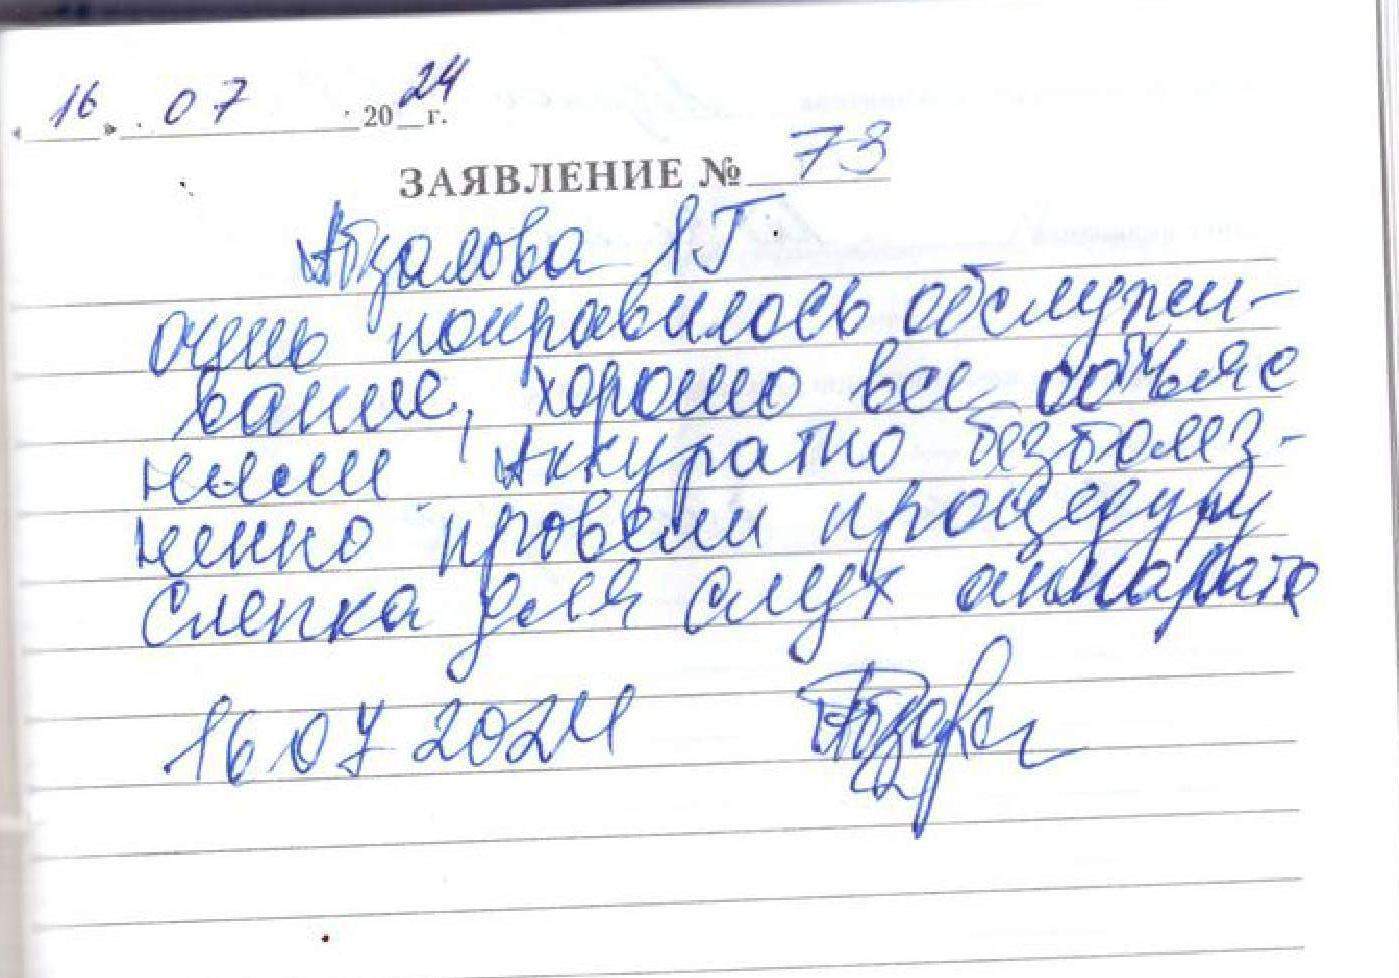 «16» 07 2024 г.
ЗАЯВЛЕНИЕ № 73
Абзалова ЛГ
очень понравилось обслужи-
вание, хорошо все объяс
нили Аккуратно безболез-
ненно провели процедуру
слепка для слух аппарата
16 07 2024